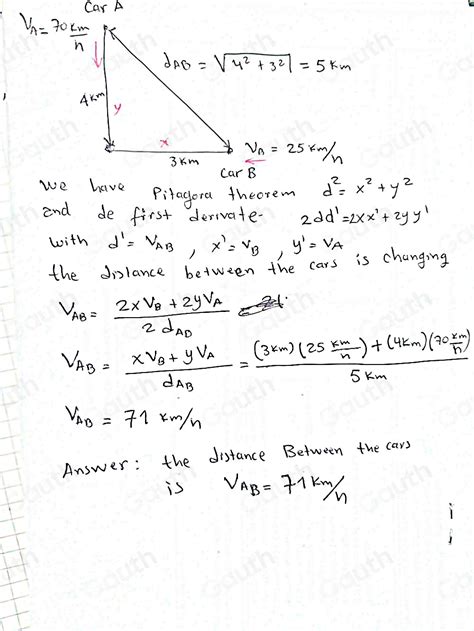 Car A
V_A = 70 km/h
d_AB = √(4² + 3²) = 5 km
4 km
y
x
V_B = 25 km/h
3 km
Car B
We have Pitagora theorem d² = x² + y²
and de first derivate- 2dd' = 2xx' + 2yy'
with d' = V_AB , x' = V_B , y' = V_A
the distance between the cars is changing
V_AB = (2xV_B + 2yV_A) / (2 d_AB)
V_AB = (xV_B + yV_A) / d_AB = ((3km)(25 km/h) + (4km)(70 km/h)) / 5 km
V_AB = 71 km/h
Answer: the distance Between the cars
is V_AB = 71 km/h
Gauth